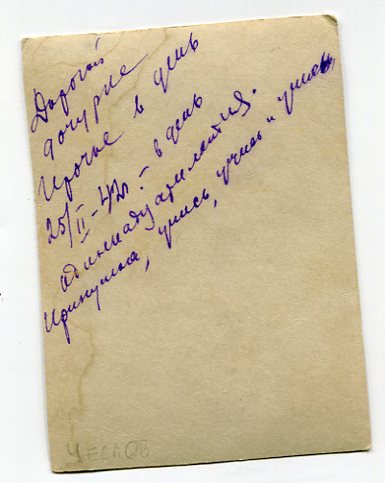 Дорогой
дочурке
Ирочке в день
25/II-42г. - в день
одиннадцатилетия.
Иринушка, учись, учись и учись
ЧЕСЛОВ